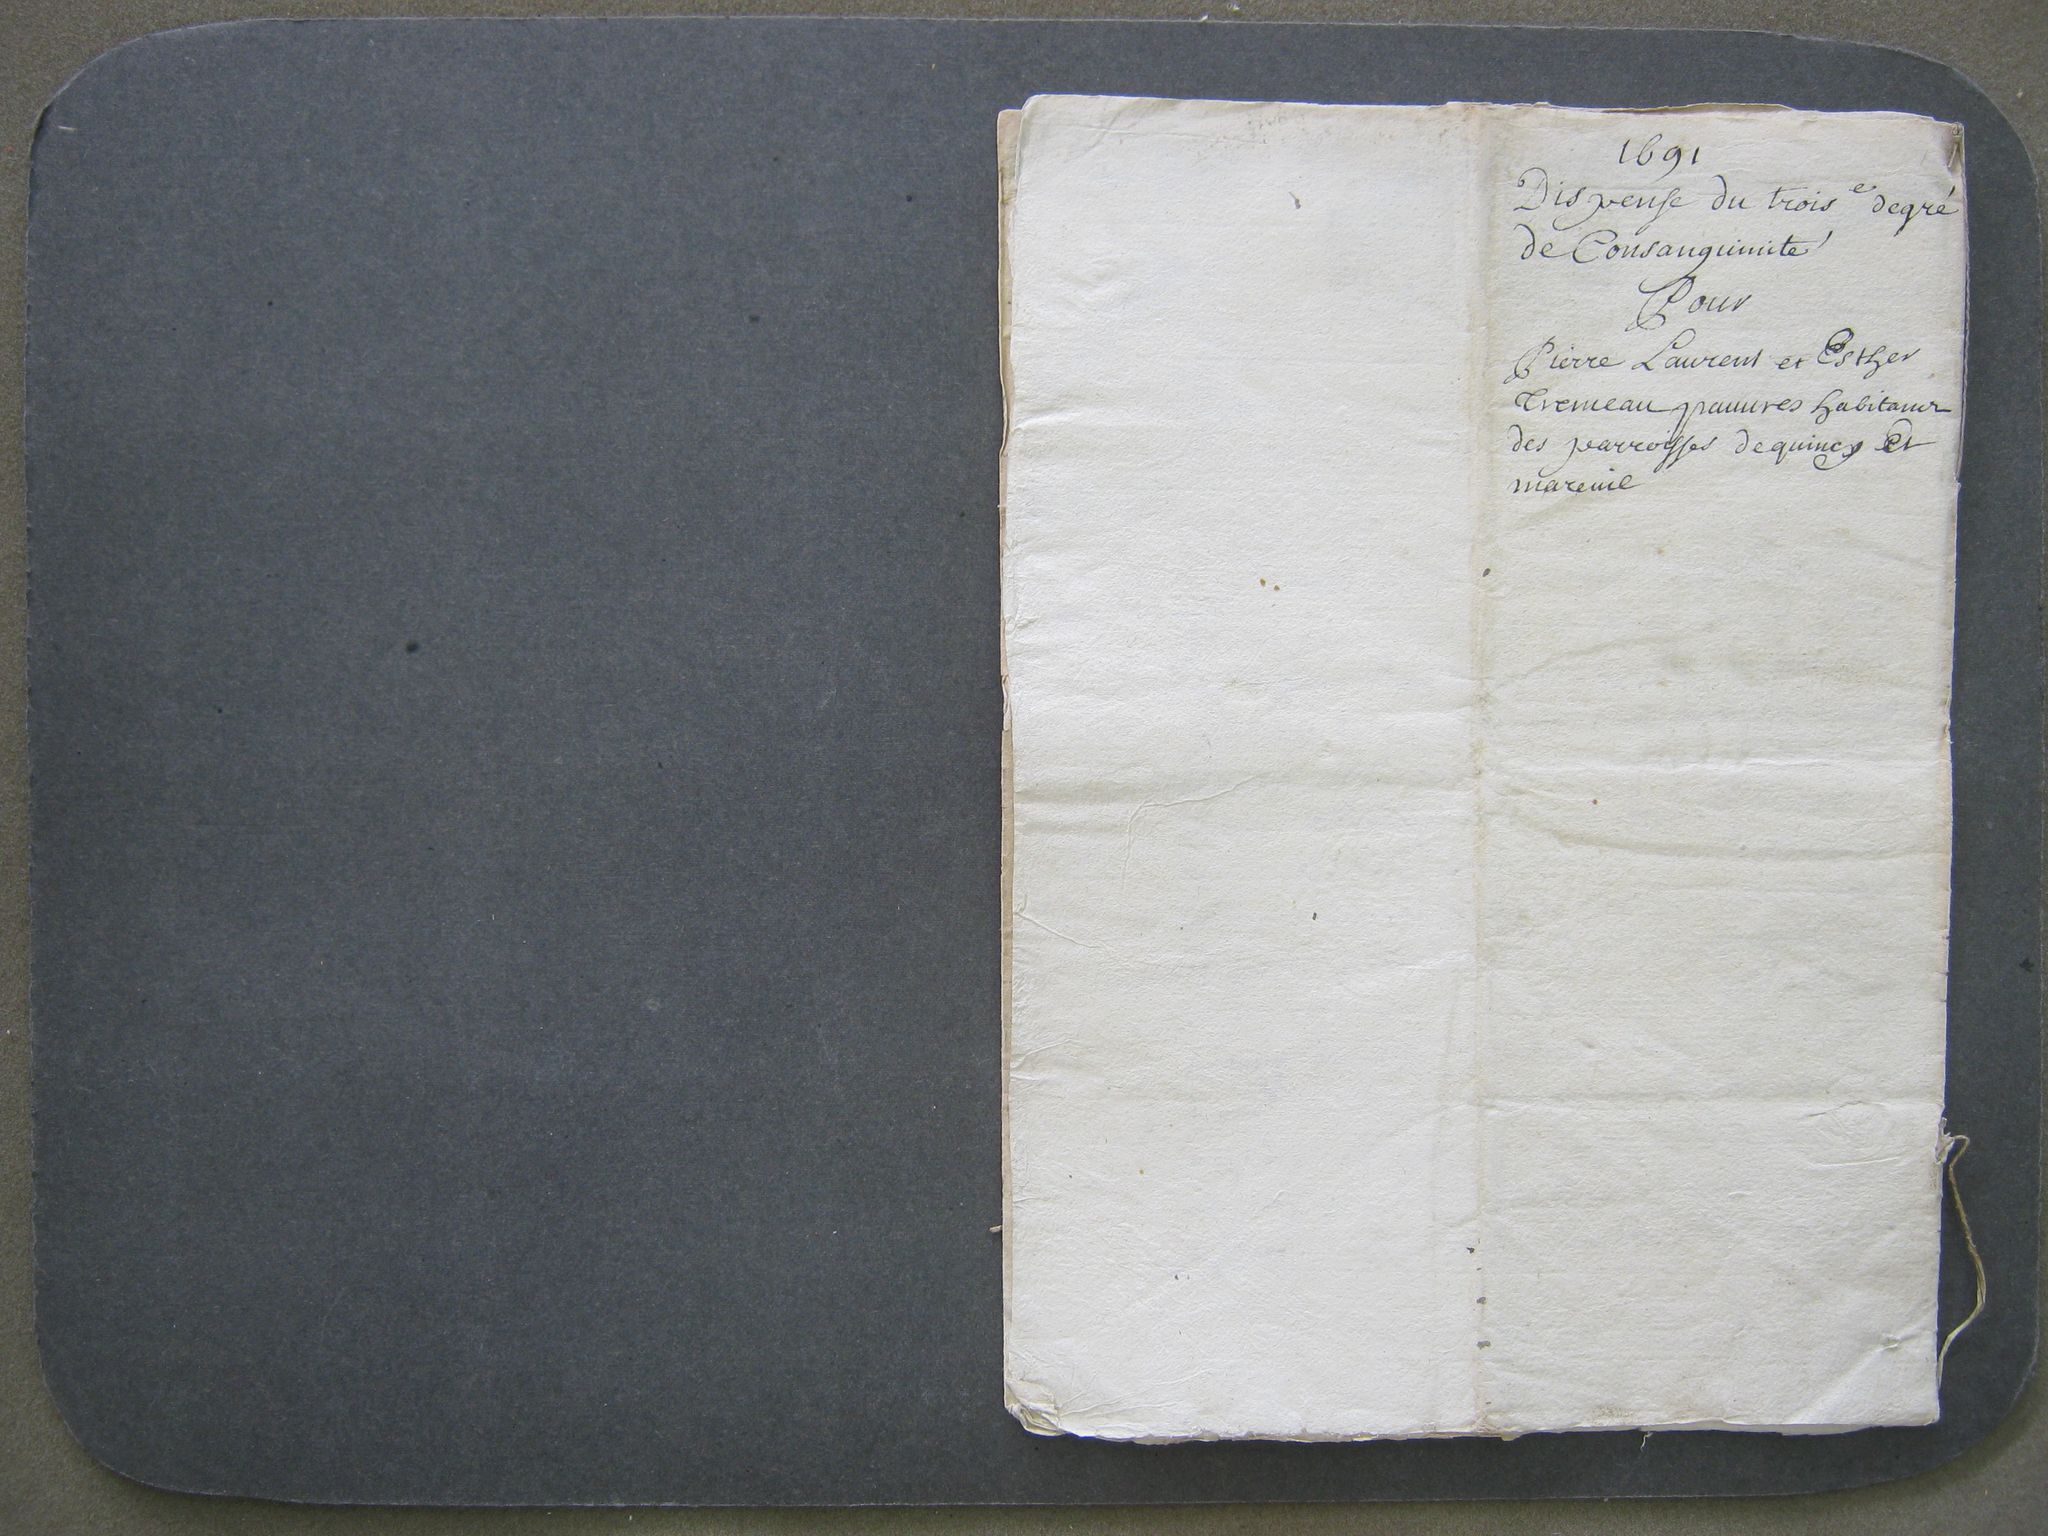 1691
Dispense du trois^e degré
de Consanguinité
Pour
Pierre Laurent et Esther
Tremeau pauures habitans
des parroisses de quincy et
mareuil